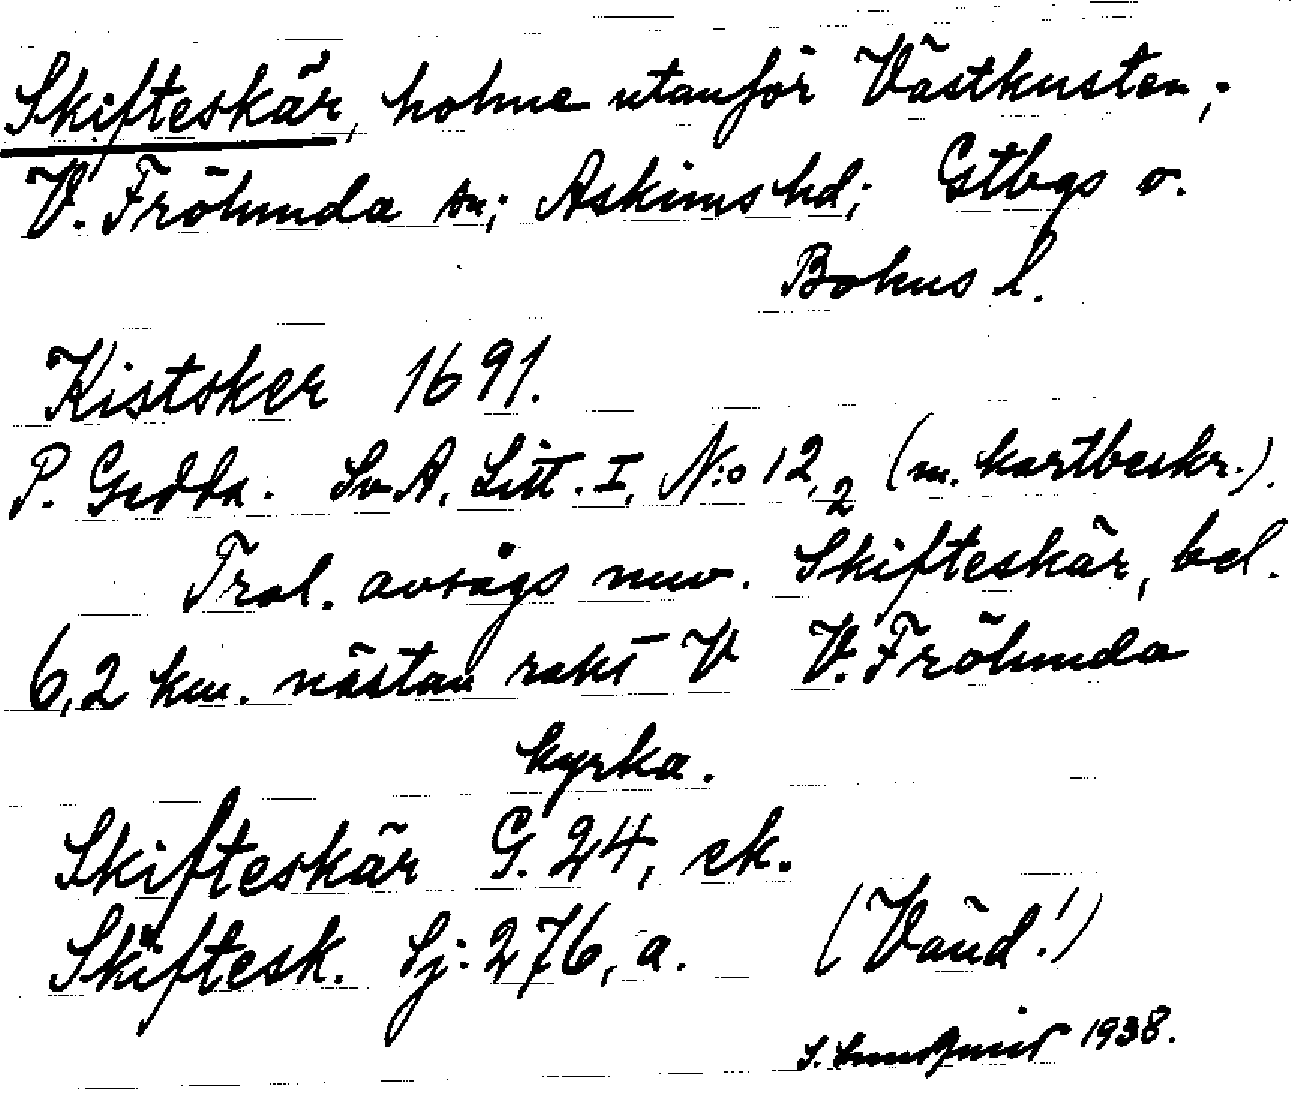 Skifteskär, holme utanför Västkusten;
V. Frölunda sn; Askims hd; Gtbgs o.
Bohus l.
Kistsker 1691.
P. Gedda. Sv A. Litt. I, N:o 12,2 (m. kartbeskr.).
Trol. avsågs nuv. Skifteskär, bel.
6,2 km. nästan rakt V V. Frölunda
kyrka.
Skifteskär G. 24, ek.
Skiftesk. Sj: 276, a. (Vänd!)
S. 1938.